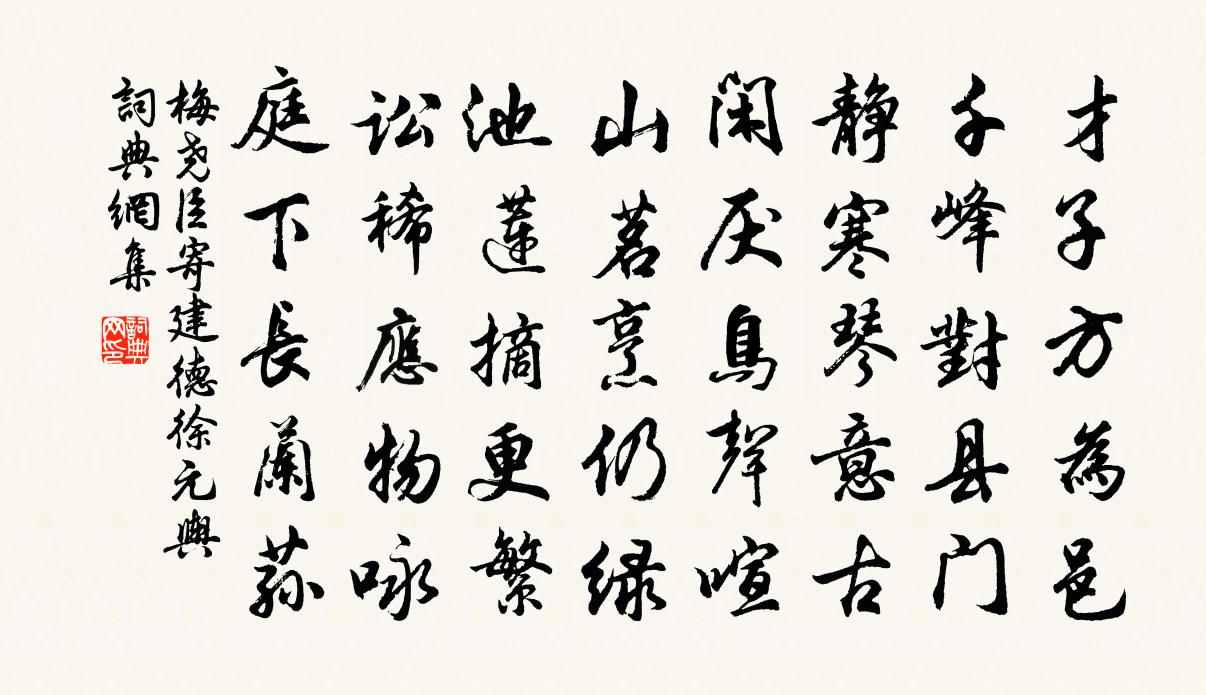 才子方為邑
千峰對县门
静寒琴意古
闲厌鳥聲喧
山茗烹仍绿
池蓮摘更繁
讼稀應物咏
庭下長蘭荪
梅尧臣寄建德徐元輿
詞典網集
詞典网印